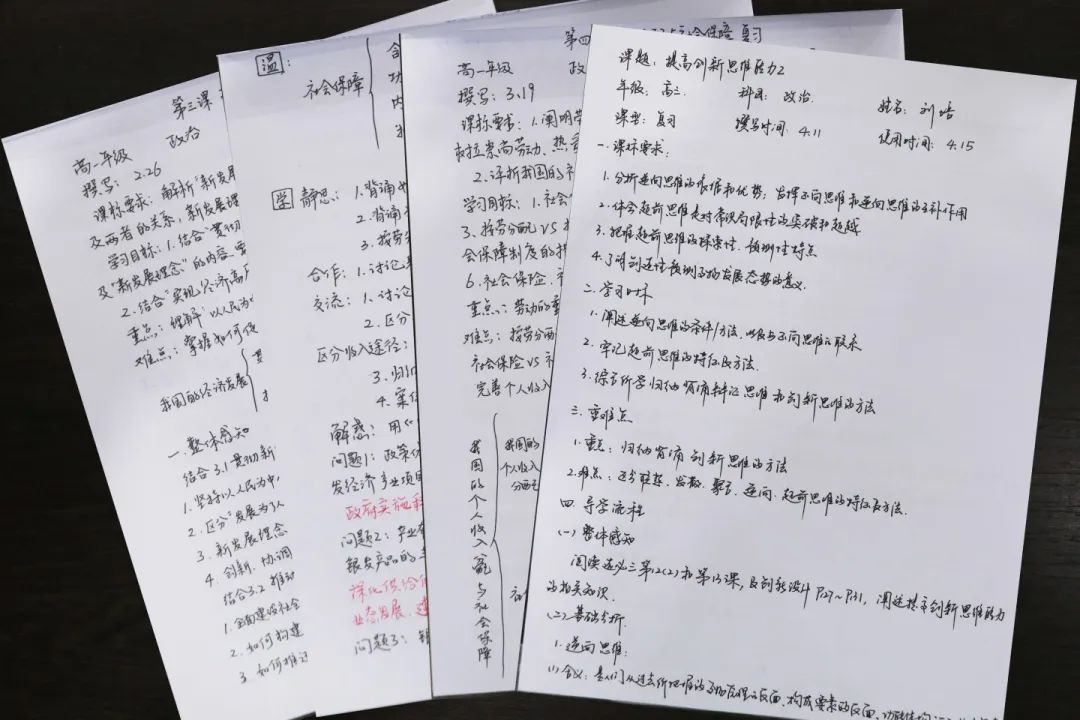 第三课
政治
高一年级
撰写：2.26
课标要求：解析"新发展
及两者的关系，新发展理
学习目标：1.结合"贯彻
及"新发展理念"的内容、
2.结合"实现经济高质
重点：理解"以人民为
难点：掌握如何使
我国的经济发展
一、整体感知
结合3.1贯彻新
1.坚持以人民为中
2.区分"发展为了人
3.新发展理念
4.创新、协调
结合3.2推动
1.全面建设社会
2.如何构建
3.如何推进
温：
社会保障
学 静思：1.背诵
2.背诵
3.按劳
合作：1.讨论
交流：1.讨论
2.区分
区分收入途径：
3.归纳
4.案
解惑：用
问题1：政策
发经济产业项目
政府实施
问题2：产业
银发产品的
深化供给
业态发展，
问题3：
第四
社会保障 复习
高一年级
政
撰写：3.19
课标要求：1.阐明劳
树立崇尚劳动、热爱
2.评析我国的
学习目标：1.社会
3.按劳分配 VS
会保障制度的
6.社会保险、
重点：劳动的
难点：按劳分配
社会保险 VS
完善个人收入
我国的个人收入分配与社会保障
我国的
个人收入
分配
课题：提高创新思维能力2
年级：高三 科目：政治 姓名：刘
课型：复习 撰写时间：4.11 使用时间：4.15
一.课标要求：
1.分析逆向思维的依据和优势，发挥正向思维和逆向思维的互补作用
2.体会超前思维是对常识局限性的突破和超越
3.把握超前思维的探索性、预测性特点
4.了解创造性预测事物发展态势的意义.
二.学习目标
1.阐述逆向思维的条件/方法，以及与正向思维的联系
2.牢记超前思维的特征及方法.
3.综合所学归纳背诵辩证思维和创新思维的方法
三.重难点
1.重点：归纳背诵创新思维的方法
2.难点：区分联想、发散、聚合、逆向、超前思维的特征及方法.
四.导学流程
(一)整体感知
阅读选必三第12(2)和第13课，及创新设计P27~P31，阐述提高创新思维能力
的相关知识.
(二)基础分析.
1.逆向思维：
(1)含义：是人们从过去所把握的事物原理的反面、构成要素的反面、功能结构